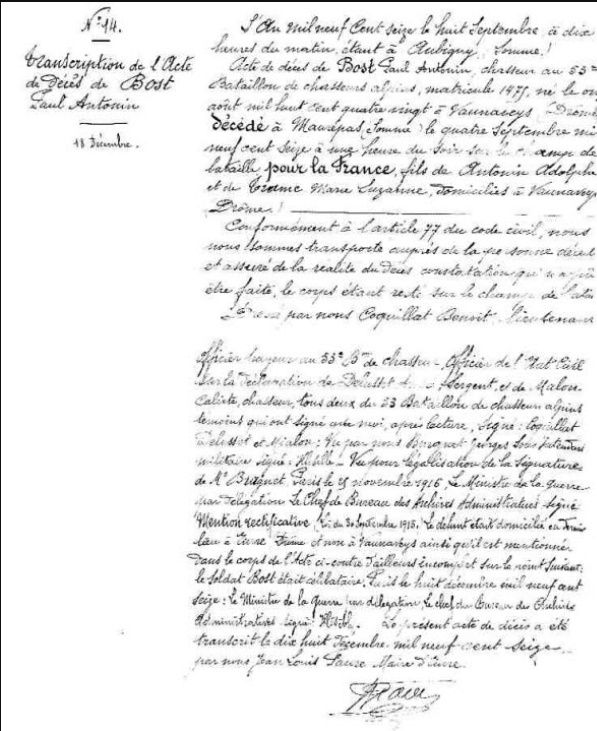 N° 14.
Transcription de l'Acte
de Décès de Bost
Paul Antonin
18 Décembre.
L'An mil neuf Cent seize le huit Septembre à dix
heures du matin, étant à Aubigny, Somme.)
Acte de décès de Bost Paul Antonin, chasseur au 53e
Bataillon de chasseurs alpins, matricule 1475, né le on
août mil huit cent quatre vingt à Vaunaveys (Drôme
décédé à Maurepas (Somme) le quatre Septembre mi
neuf cent seize à une heure du soir sur le champ de
bataille, pour la France, fils de Antonin Adolphe
et de Marie Suzanne, domiciliés à Vaunavey
Drôme.)
Conformément à l'article 77 du code civil, nous
nous sommes transporté auprès de la personne décéd
et assuré de la réalité du Décès constatation qui n'a pu
être faite, le corps étant resté sur le champ de batai
Dressé par nous Coquillat Benoit, lieutenant
Officier payeur au 53e Bon de chasseurs, Officier de l'Etat Civil
sur la déclaration de Sergent, et de
Caliste, chasseur, tous deux du 53 Bataillon de chasseurs alpins
témoins qui ont signé avec moi, après lecture, Signé: Coquillat
et Vu par nous Burgnat Georges Sous intendant
militaire signé: Vu pour légalisation de la Signature
de Mr Paris le 25 novembre 1916, Le Ministre de la Guerre
par délégation Le Chef de Bureau des Archives Administratives signé
Mention rectificative (Loi du 30 Septembre 1915, le défunt était domicilié en dernier
lieu à Eurre Drôme et non à Vaunaveys ainsi qu'il est mentionné
dans le corps de l'Acte ci-contre d'ailleurs incomplet sur le point suivant:
le soldat Bost était célibataire, Paris le huit décembre mil neuf cent
seize: le Ministre de la Guerre par délégation le chef du Bureau des Archives
Administratives signé: Le présent acte de décès a été
transcrit le dix huit Décembre mil neuf cent Seize
par nous Jean Louis Faure Maire d'Eurre.